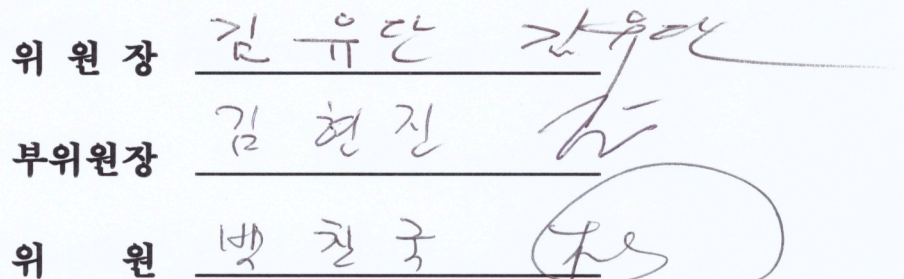 위 원 장 김 유 단 김유단
부위원장 김 현 진
위 원 백 진 국